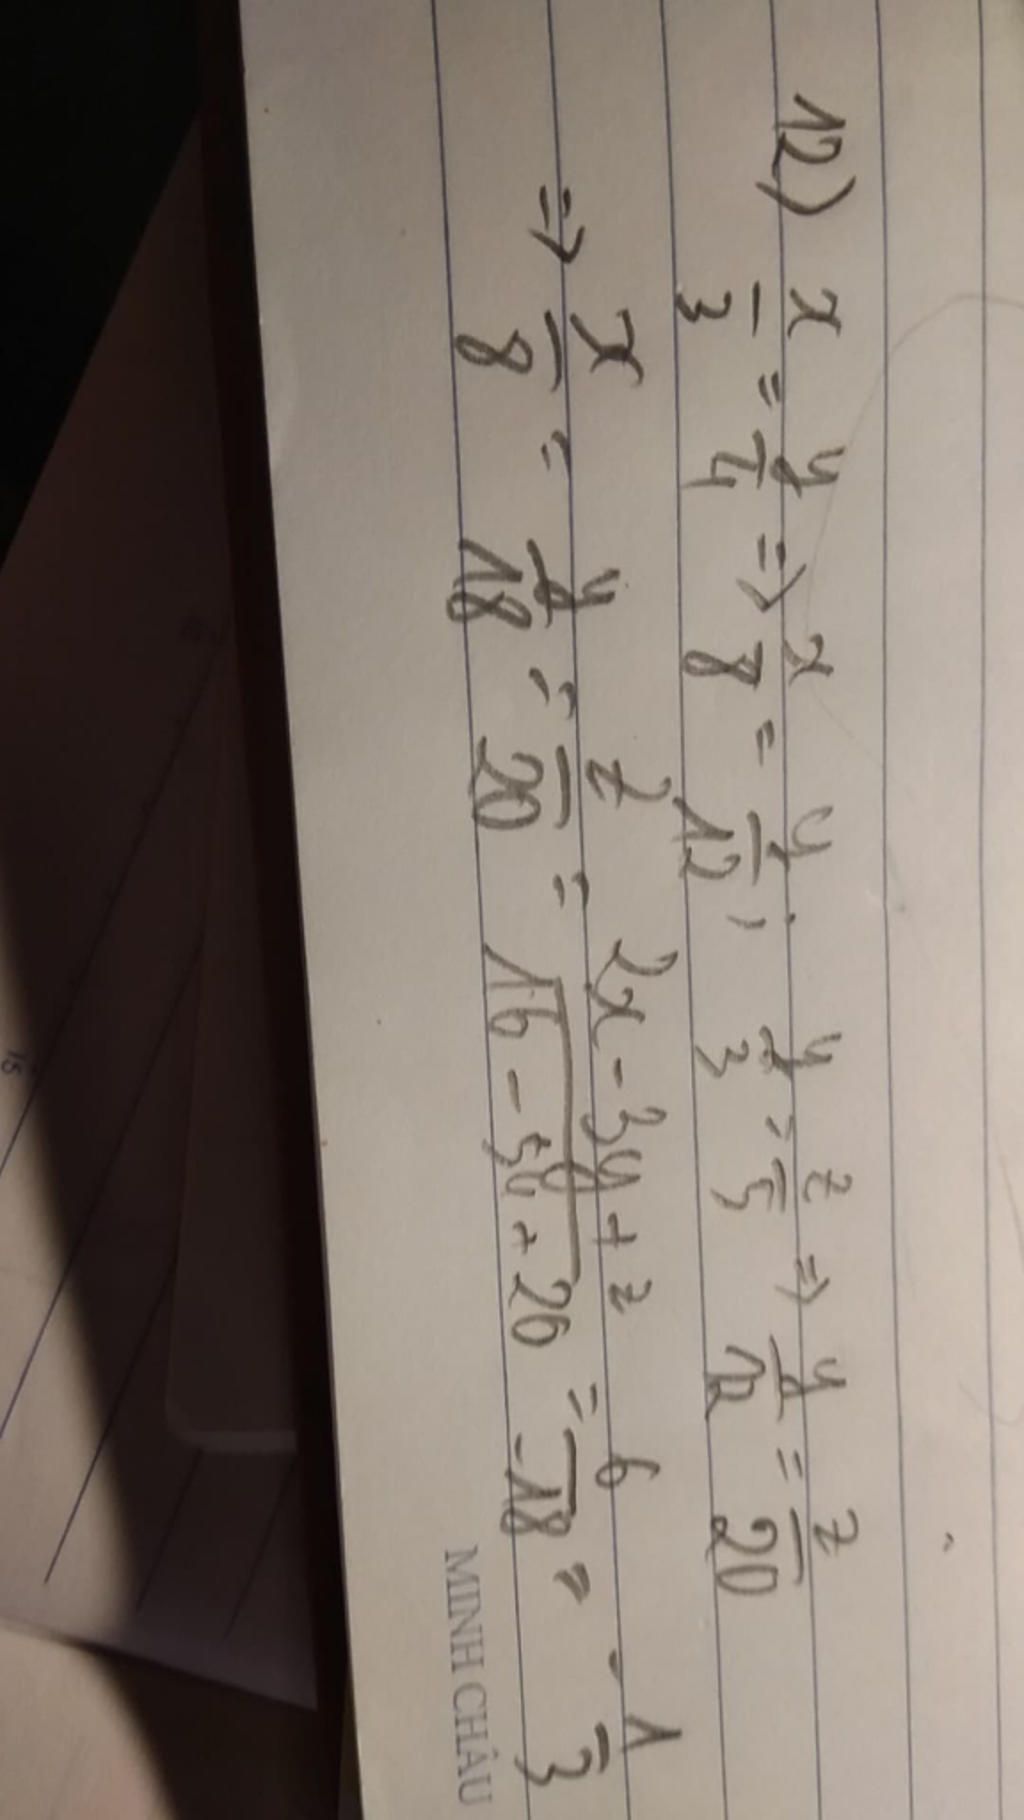 12) x/3 = y/4 => x/8 = y/12 ; y/3 = z/5 => y/12 = z/20
=> x/8 = y/18 = z/20 = (2x - 3y + z)/(16 - 54 + 20) = 6/-18 = -1/3
MINH CHÂU
15